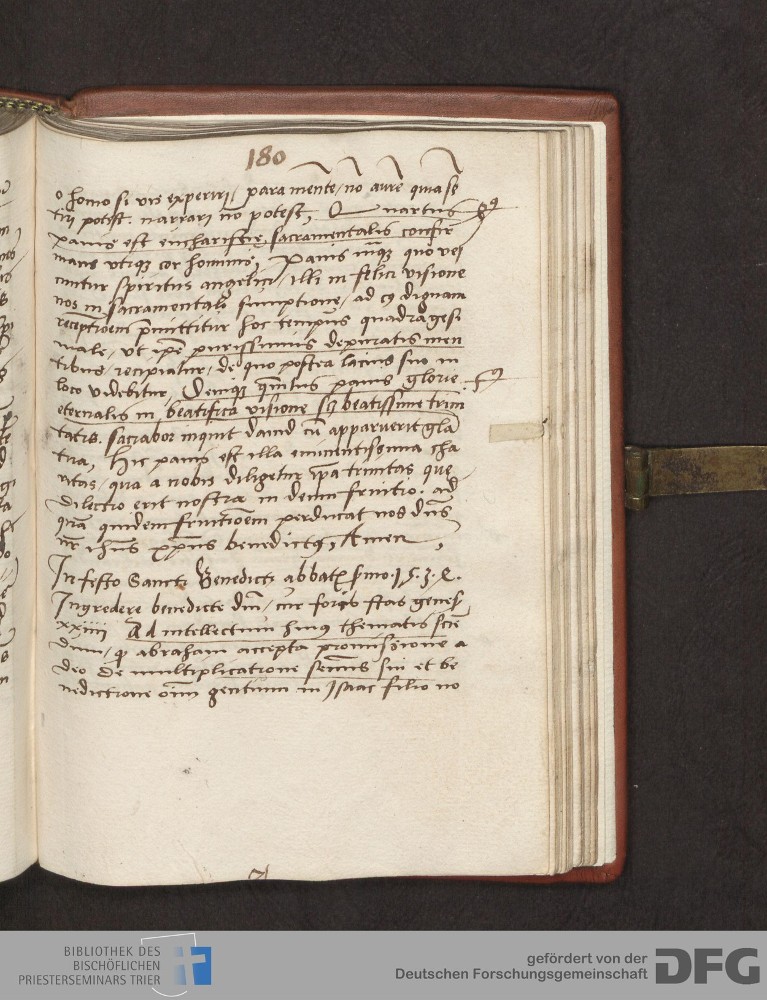 180
o homo si vis experiri, para mente, no aure quia se
tiri potest. narrari no potest, Quartus 4us
panis est eucharistie sacramentalis confir
mans vtique cor hominis, Panis inquam quo vez
cuntur spiritus angelici, illi in felici visione
nos in sacramentali sumptione, ad dignam
receptioem pmittitur hoc tempus quadragesi
male, vt ipe purissimis depuratis men
tibus, recipiatur, de quo postea lacius suo in
loco videbitur, Denique quintus panis glorie 5us
eternalis in beatifica visione beatissime trini
tatis. saciabor inquit dauid cu apparuerit gla
tua, Hic panis est illa eminentissima cha
ritas, qua a nobis diligetur ipa trinitas que
dilectio erit nostra in deum fruitio. ad
qua quidem fruitioem perducat nos dns
nr ihus xpus benedictus, Amen,
In festo Sancti Benedicti abbatis 1532.
Ingredere benedicte dni, cur foris stas genes
xxiiii Ad intellectum huius thematis scie
dum, q abraham accepta promissione a
deo de multiplicatione seminis sui et be
nedictione oim gentium in Isaac filio no
BIBLIOTHEK DES
BISCHÖFLICHEN
PRIESTERSEMINARS TRIER
gefördert von der
Deutschen Forschungsgemeinschaft
DFG